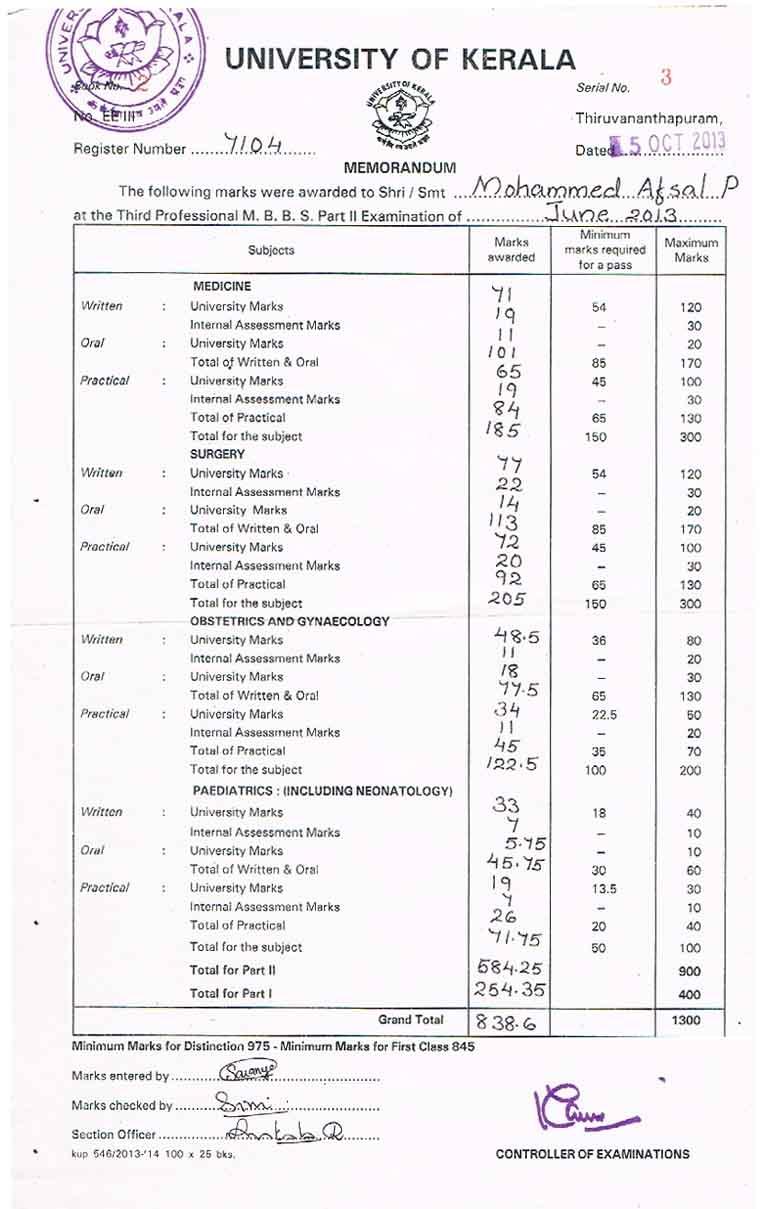 UNIVERSITY OF KERALA
Book No. 2
Serial No. 3
No. EE III
Thiruvananthapuram,
Register Number 7104
Dated 15 OCT 2013
MEMORANDUM
The following marks were awarded to Shri / Smt Mohammed Afsal P
at the Third Professional M. B. B. S. Part II Examination of June 2013
Subjects Marks awarded Minimum marks required for a pass Maximum Marks
MEDICINE
Written : University Marks 71 54 120
Internal Assessment Marks 19 – 30
Oral : University Marks 11 – 20
Total of Written & Oral 101 85 170
Practical : University Marks 65 45 100
Internal Assessment Marks 19 – 30
Total of Practical 84 65 130
Total for the subject 185 150 300
SURGERY
Written : University Marks 77 54 120
Internal Assessment Marks 22 – 30
Oral : University Marks 14 – 20
Total of Written & Oral 113 85 170
Practical : University Marks 72 45 100
Internal Assessment Marks 20 – 30
Total of Practical 92 65 130
Total for the subject 205 150 300
OBSTETRICS AND GYNAECOLOGY
Written : University Marks 48.5 36 80
Internal Assessment Marks 11 – 20
Oral : University Marks 18 – 30
Total of Written & Oral 77.5 65 130
Practical : University Marks 34 22.5 50
Internal Assessment Marks 11 – 20
Total of Practical 45 35 70
Total for the subject 122.5 100 200
PAEDIATRICS : (INCLUDING NEONATOLOGY)
Written : University Marks 33 18 40
Internal Assessment Marks 7 – 10
Oral : University Marks 5.75 – 10
Total of Written & Oral 45.75 30 60
Practical : University Marks 19 13.5 30
Internal Assessment Marks 7 – 10
Total of Practical 26 20 40
Total for the subject 71.75 50 100
Total for Part II 584.25 900
Total for Part I 254.35 400
Grand Total 838.6 1300
Minimum Marks for Distinction 975 - Minimum Marks for First Class 845
Marks entered by
Marks checked by
Section Officer
kup 546/2013-'14 100 x 25 bks.
CONTROLLER OF EXAMINATIONS